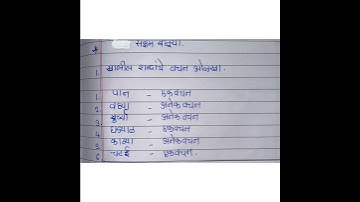 * सक्षम बनूया.
1. खालील शब्दांचे वचन ओळखा.
1. पान - एकवचन
2. वह्या - अनेकवचन
3. खुर्च्या - अनेक वचन
4. घड्याळ - एकवचन
5. काठ्या - अनेकवचन
6. चटई - एकवचन.